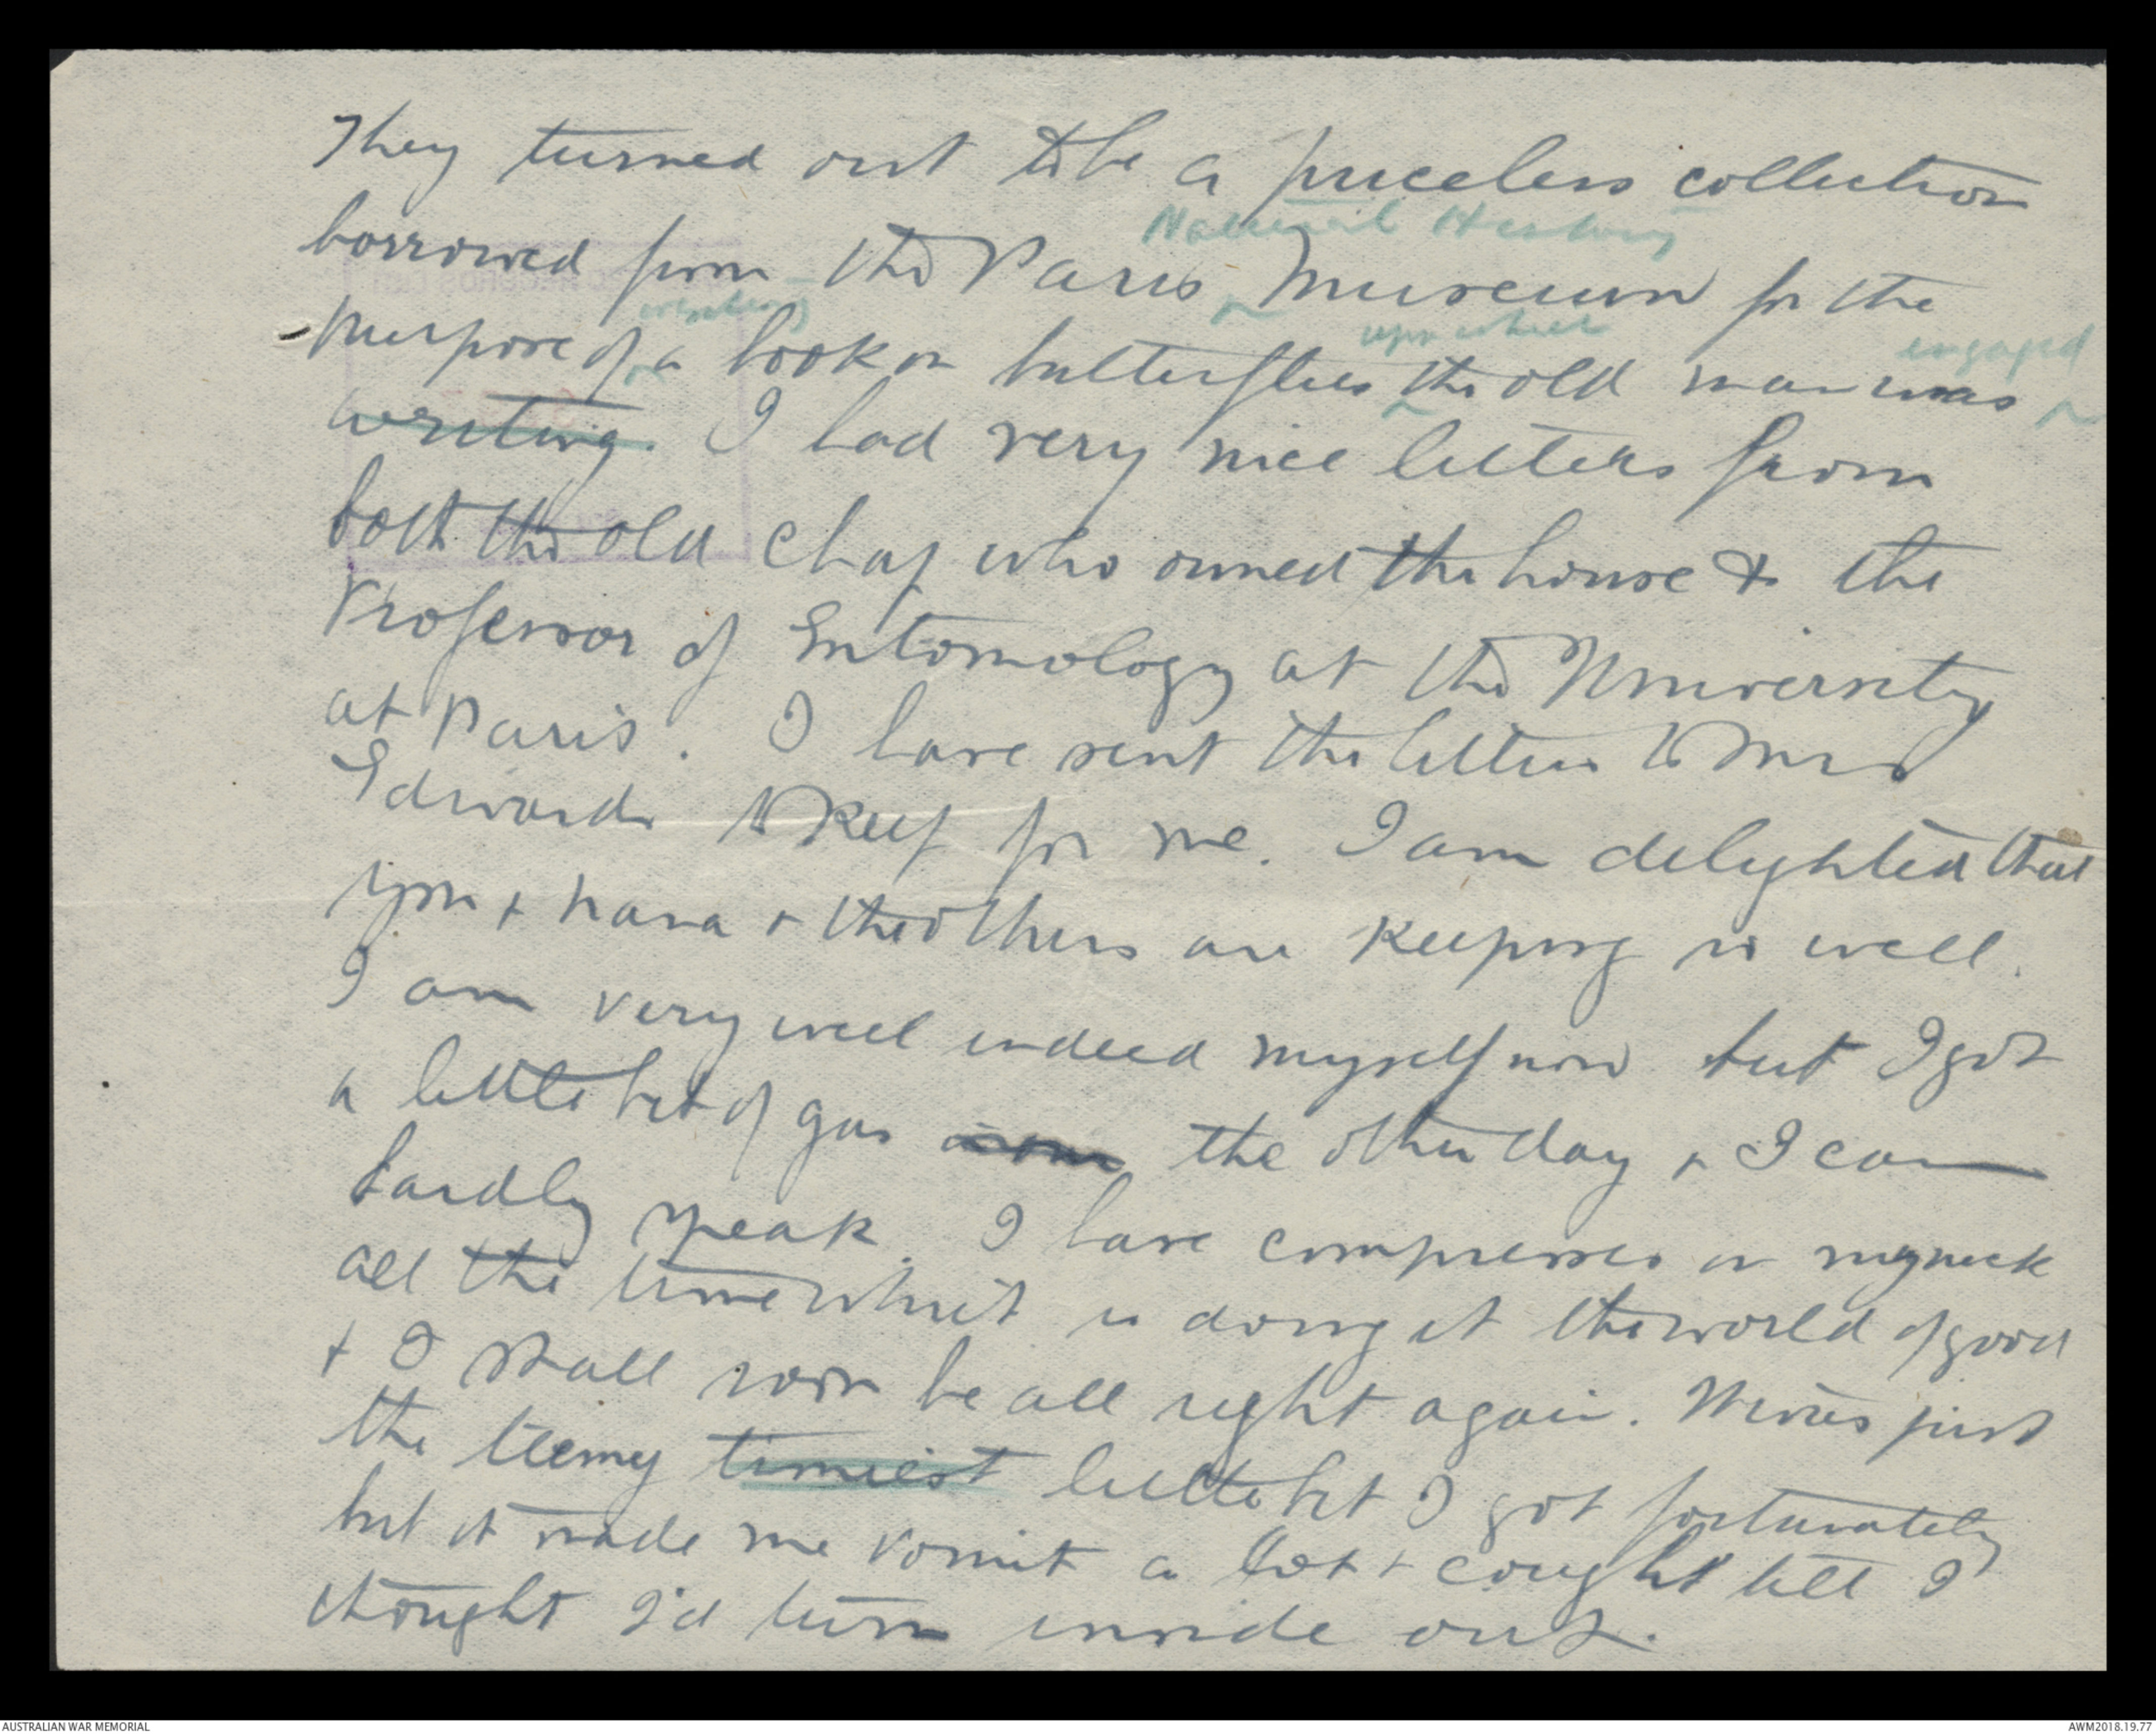 They turned out to be a priceless collection
Natural History
borrowed from the Paris Museum for the
writing upon which engaged
purpose of a book on butterflies the old man was
writing. I had very nice letters from
both the old chap who owned the house & the
Professor of Entomology at the University
at Paris. I have sent the letters to Mrs
Edwards to keep for me. I am delighted that
you + Nana + the others are keeping so well.
I am very well indeed myself now but I got
a little bit of gas the other day + I can
hardly speak. I have compresses on my neck
all the time which is doing it the world of good
+ I shall soon be all right again. It was just
the teemy timiest little bit I got fortunately
but it made me vomit a lot + cough till I
thought I'd turn inside out.
AUSTRALIAN WAR MEMORIAL
AWM2018.19.77